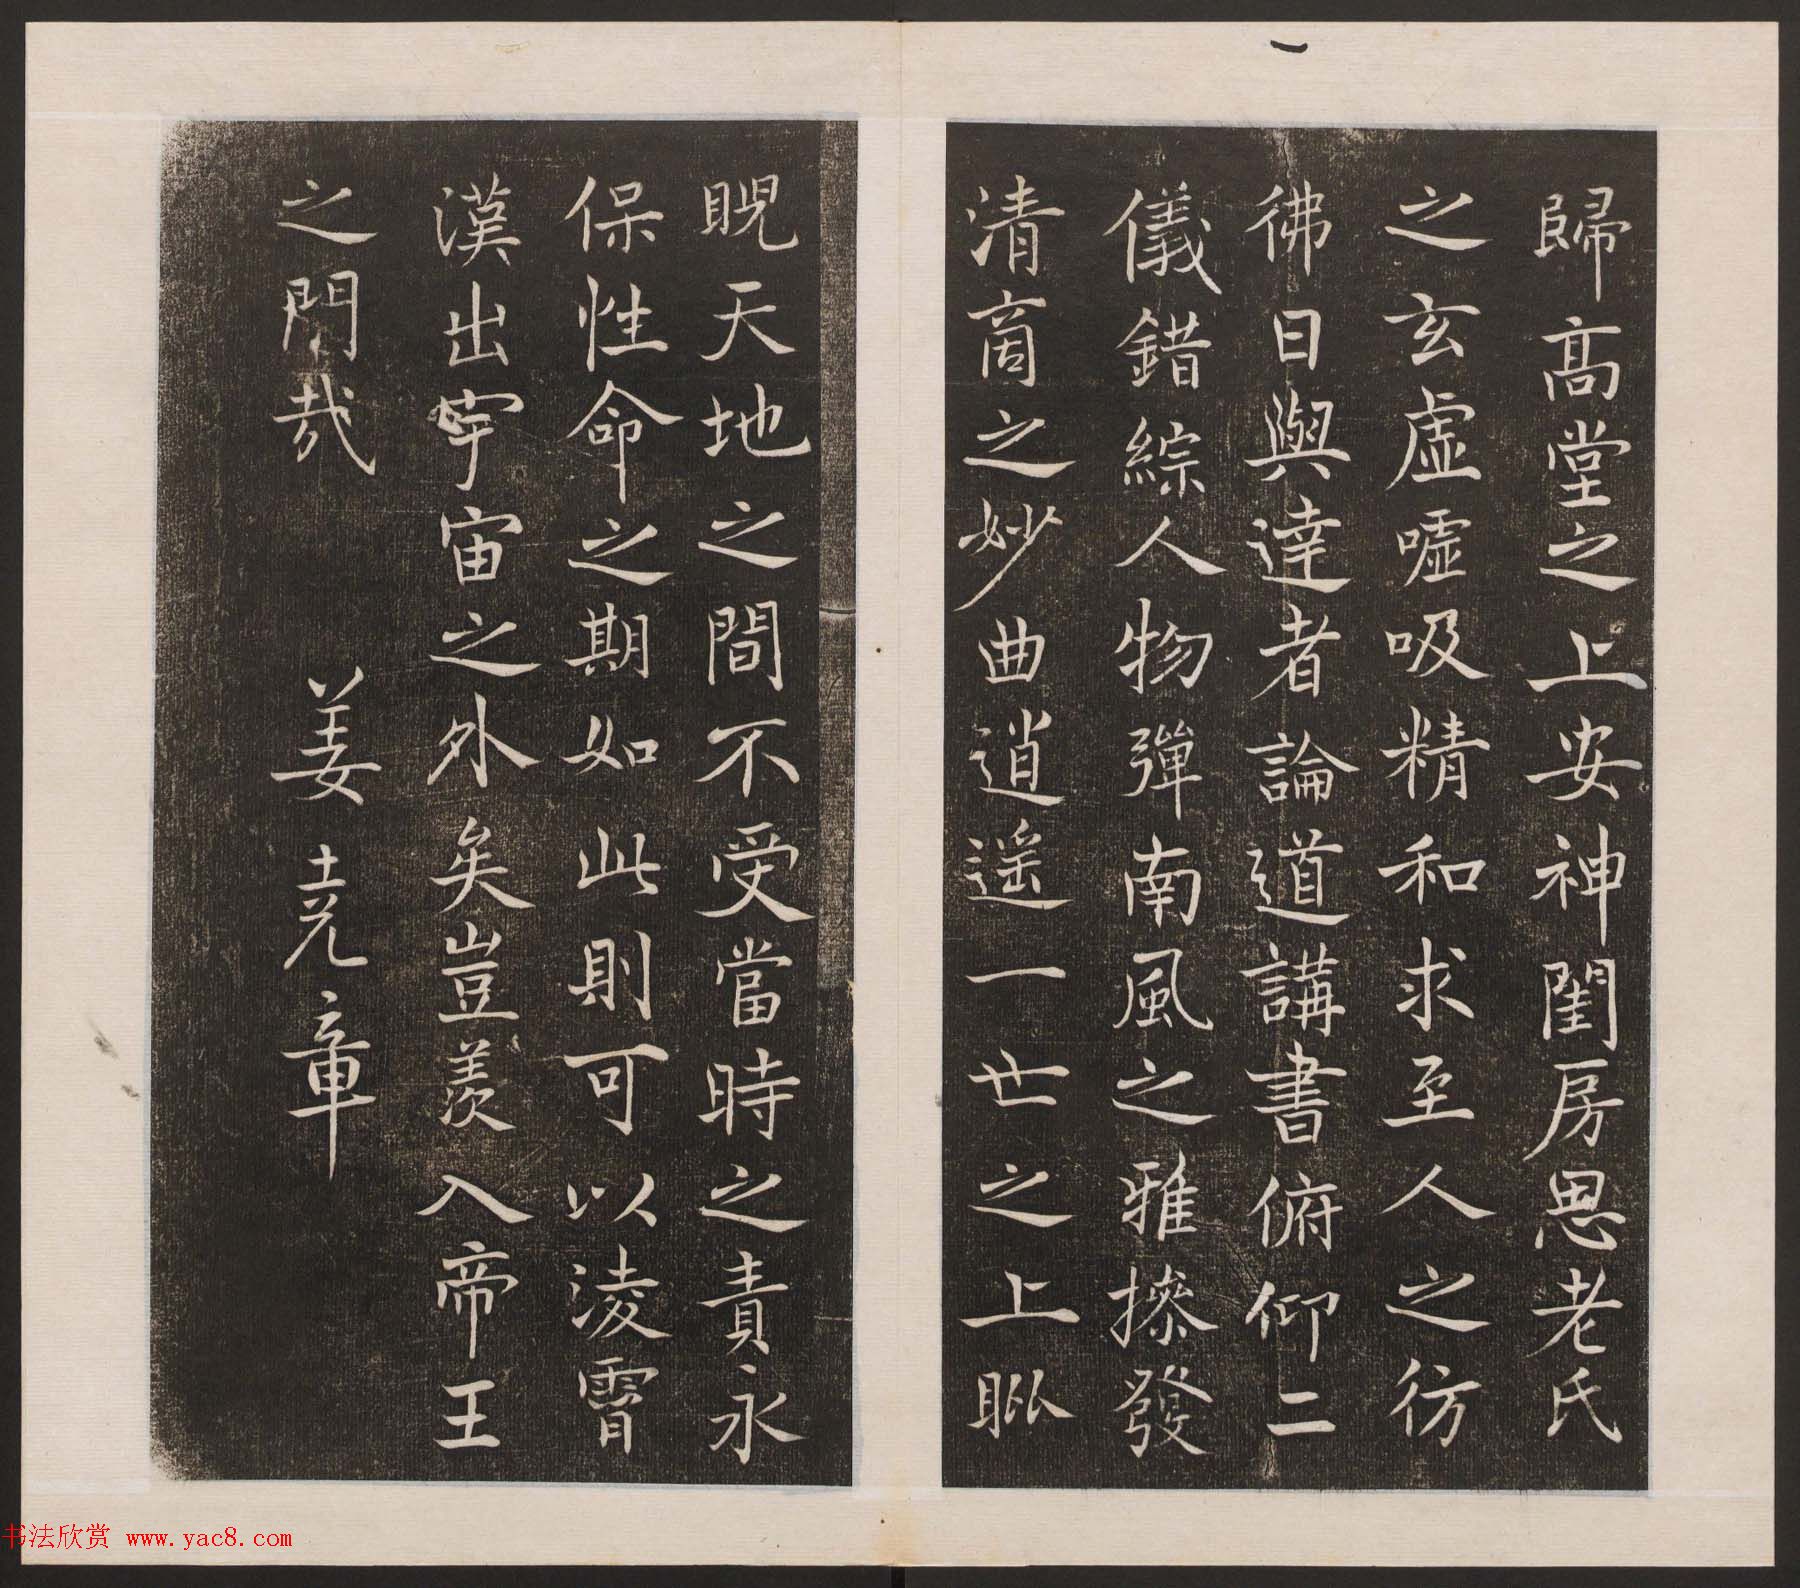 歸高堂之上安神閨房思老氏
之玄虛噓吸精和求至人之彷
彿日與達者論道講書俯仰二
儀錯綜人物彈南風之雅操發
清商之妙曲逍遥一世之上睥
睨天地之間不受當時之責永
保性命之期如此則可以淩霄
漢出宇宙之外矣豈羨入帝王
之門哉　姜堯章
书法欣赏 www.yac8.com